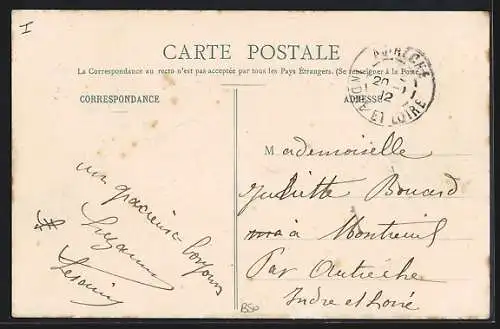 I
CARTE POSTALE
La Correspondance au recto n'est pas acceptée par tous les Pays Étrangers. (Se renseigner à la Poste)
CORRESPONDANCE
ADRESSE
AUTRECHE
20 - 11
12
INDRE ET LOIRE
Mademoiselle
Juliette Boucard
à Montreuil
Par Autrèche
Indre et Loire
un gracieux bonjour
Suzanne
BSP